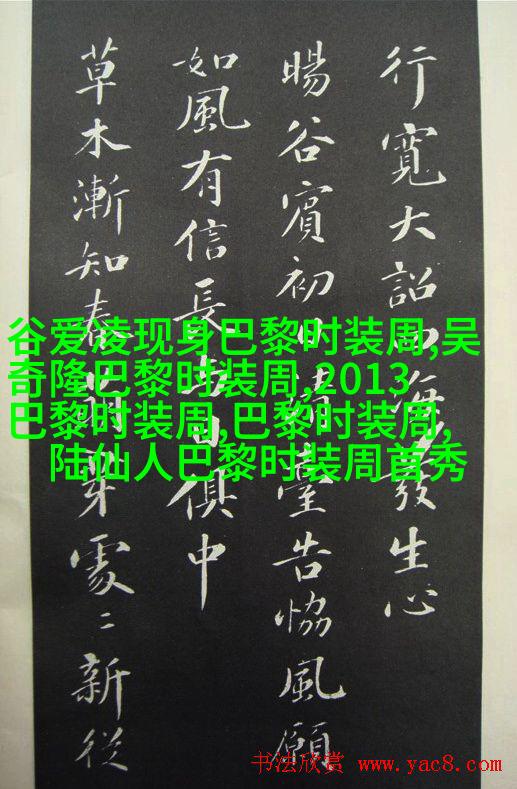 行寬大詔四海發生心
暘谷賓初日清臺告協風願
如風有信長與日俱中
草木漸知春萌芽處〻新從
谷爱凌现身巴黎时装周,吴
奇隆巴黎时装周,2013
巴黎时装周,巴黎时装周,
陆仙人巴黎时装周首秀
书法欣赏 www.yac8.com